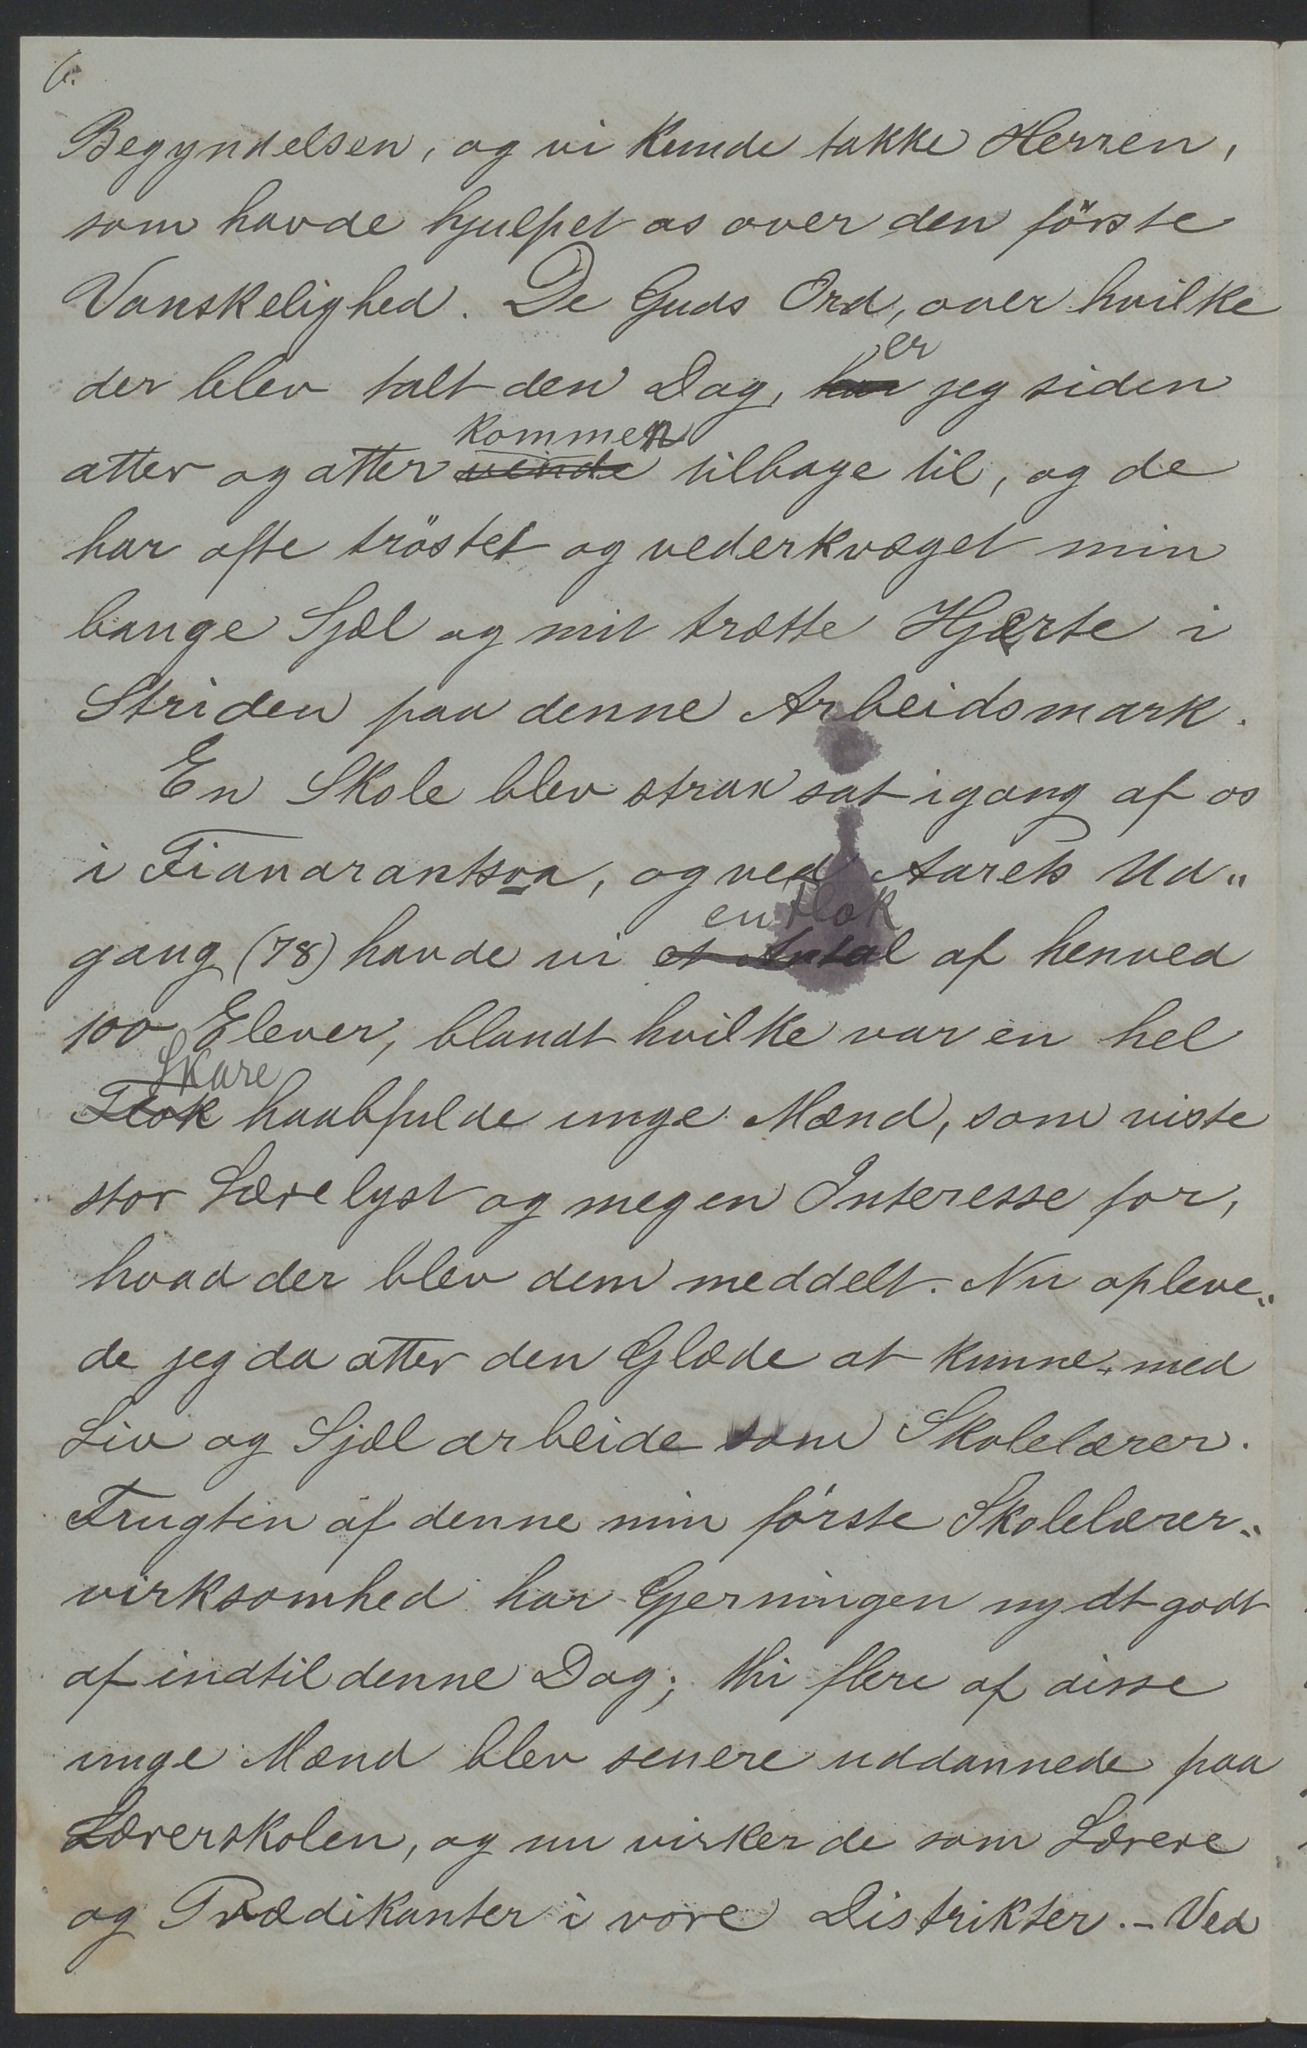 6.
Begyndelsen, og vi kunde takke Herren,
som havde hjulpet os over den förste
Vanskelighed. De Guds Ord, over hvilke
er
der blev talt den Dag, har jeg siden
kommen
atter og atter vende tilbage til, og de
har ofte tröstet og vederkvæget min
bange Sjæl og mit trætte Hjerte i
Striden paa denne Arbeidsmark.
En Skole blev strax sat igang af os
i Fianarantsoa, og ved Aarets Ud„
en Flok
gang (78) havde vi et Antal af henved
100 Elever, blandt hvilke var en hel
Skare
Flok haabfulde unge Mænd, som viste
stor Lærelyst og megen Interesse for,
hvad der blev dem meddelt. Nu opleve„
de jeg da atter den Glæde at kunne med
Liv og Sjæl arbeide som Skolelærer.
Frugten af denne min förste Skolelærer„
virksomhed har Gjerningen nydt godt
af indtil denne Dag; thi flere af disse
unge Mænd blev senere uddannede paa
Lærerskolen, og nu virker de som Lærere
og Prædikanter i vore Distrikter. – Ved